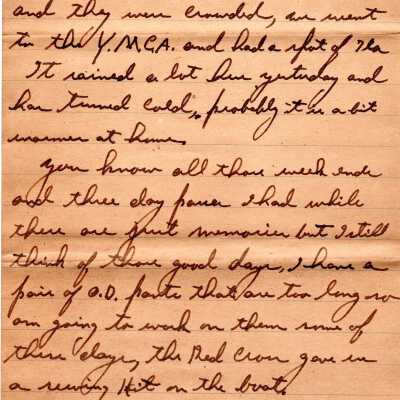 and they were crowded, we went
to the Y.M.C.A. and had a spot of Tea
It rained a lot here yesterday and
has turned cold, probably it is a bit
warmer at home.
You know all those week ends
and three day passes I had while
there are just memories but I still
think of those good days, I have a
pair of O.D. pants that are too long so
am going to work on them some of
these days, the Red Cross gave us
a sewing Kit on the boat.